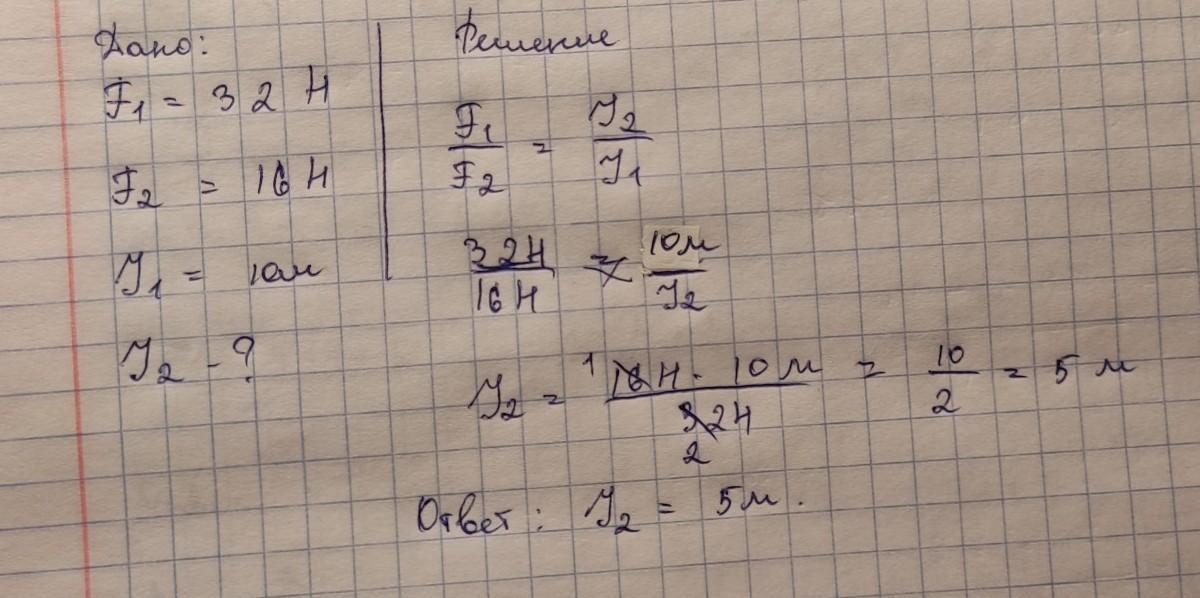 Дано:
F₁ = 32 Н
F₂ = 16 Н
Y₁ = 10м
Y₂ - ?
Решение
F₁/F₂ = Y₂/Y₁
32Н/16Н = 10м/Y₂
Y₂ = 16Н · 10м/32Н = 10/2 = 5 м
1
2
Ответ: Y₂ = 5м.